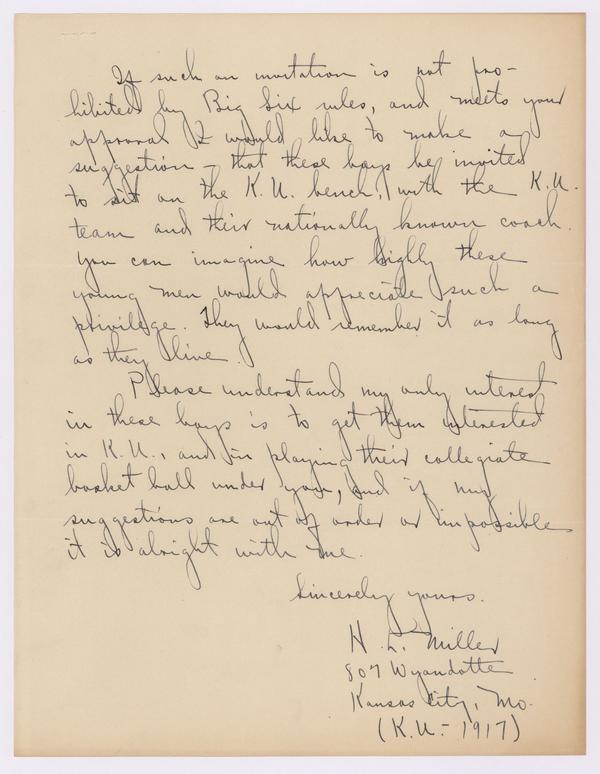 If such an invitation is not pro-
hibited by Big Six rules, and meets your
approval I would like to make a
suggestion - that these boys be invited
to sit on the K.U. bench, with the K.U.
team and their nationally known coach.
You can imagine how highly these
young men would appreciate such a
privilege. They would remember it as long
as they live.
Please understand my only interest
in these boys is to get them interested
in K.U., and in playing their collegiate
basket ball under you, and if my
suggestions are out of order or impossible
it is alright with me.
Sincerely yours.
H. L. Miller
807 Wyandotte
Kansas City, Mo.
(K.U. - 1917)